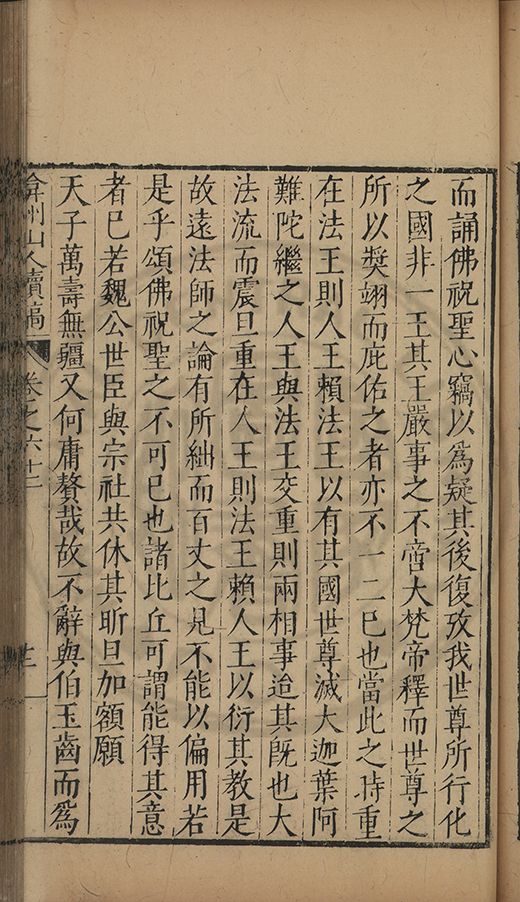 而誦佛祝聖心竊以為疑其後復攷我世尊所行化
之國非一王其王嚴事之不啻大梵帝釋而世尊之
所以奬翊而庇佑之者亦不一二已也當此之時重
在法王則人王賴法王以有其國世尊滅大迦葉阿
難陀繼之人王與法王交重則兩相事迨其既也大
法流而震旦重在人王則法王賴人王以衍其教是
故遠法師之論有所紬而百丈之見不能以偏用若
是乎頌佛祝聖之不可已也諸比丘可謂能得其意
者已若魏公世臣與宗社共休其昕旦加額願
天子萬壽無疆又何庸贅哉故不辭與伯玉齒而為
弇州山人續稿
卷之六十二